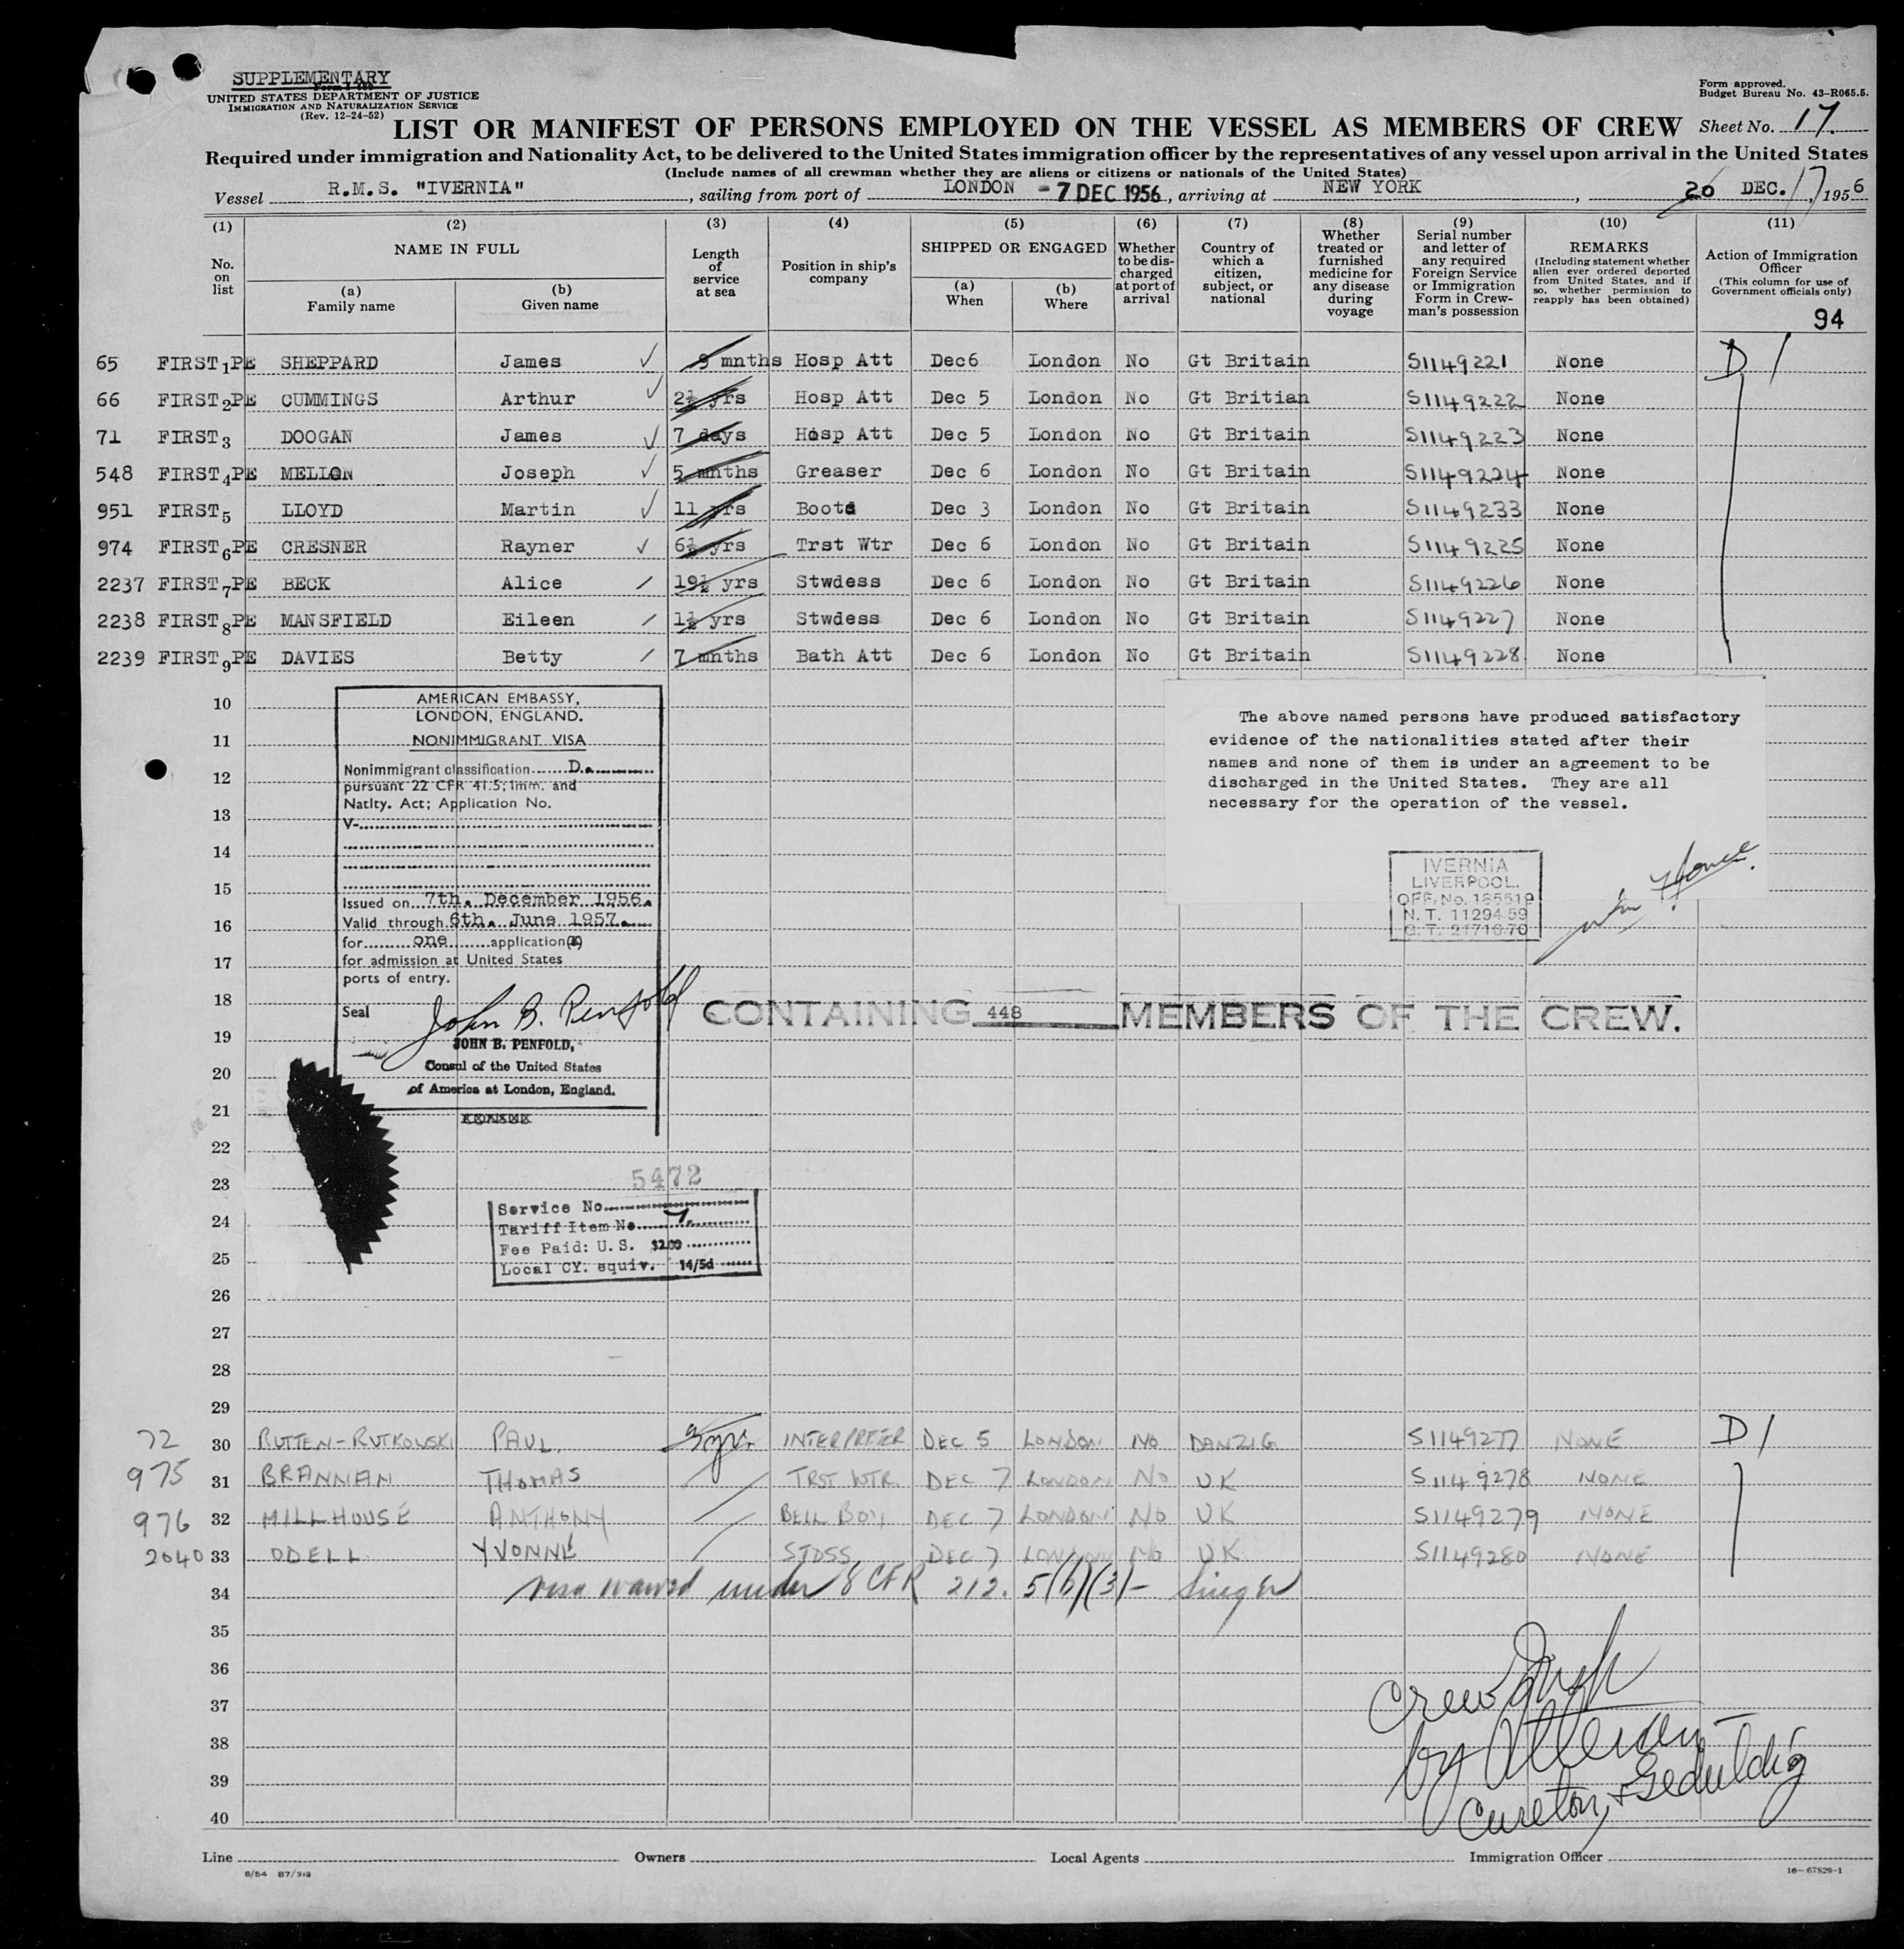 SUPPLEMENTARY
UNITED STATES DEPARTMENT OF JUSTICE
IMMIGRATION AND NATURALIZATION SERVICE
(Rev. 12-24-52)
Form approved.
Budget Bureau No. 43-R065.5.
LIST OR MANIFEST OF PERSONS EMPLOYED ON THE VESSEL AS MEMBERS OF CREW Sheet No. 17.
Required under immigration and Nationality Act, to be delivered to the United States immigration officer by the representatives of any vessel upon arrival in the United States
(Include names of all crewman whether they are aliens or citizens or nationals of the United States)
Vessel R.M.S. "IVERNIA", sailing from port of LONDON -7 DEC 1956, arriving at NEW YORK, DEC. 17, 1956
(1) No. on list
(2) NAME IN FULL
(a) Family name
(b) Given name
(3) Length of service at sea
(4) Position in ship's company
(5) SHIPPED OR ENGAGED
(a) When
(b) Where
(6) Whether to be discharged at port of arrival
(7) Country of which a citizen, subject, or national
(8) Whether treated or furnished medicine for any disease during voyage
(9) Serial number and letter of any required Foreign Service or Immigration Form in Crewman's possession
(10) REMARKS (Including statement whether alien ever ordered deported from United States, and if so, whether permission to reapply has been obtained)
(11) Action of Immigration Officer (This column for use of Government officials only)
94
65 FIRST 1 PE SHEPPARD James 9 mnths Hosp Att Dec6 London No Gt Britain S1149221 None D 1
66 FIRST 2 PE CUMMINGS Arthur 2½ yrs Hosp Att Dec 5 London No Gt Britian S1149222 None
71 FIRST 3 DOOGAN James 7 days Hosp Att Dec 5 London No Gt Britain S1149223 None
548 FIRST 4 PE MELLON Joseph 5 mnths Greaser Dec 6 London No Gt Britain S1149224 None
951 FIRST 5 LLOYD Martin 11 yrs Boots Dec 3 London No Gt Britain S1149233 None
974 FIRST 6 PE CRESNER Rayner 6½ yrs Trst Wtr Dec 6 London No Gt Britain S1149225 None
2237 FIRST 7 PE BECK Alice 19½ yrs Stwdess Dec 6 London No Gt Britain S1149226 None
2238 FIRST 8 PE MANSFIELD Eileen 1½ yrs Stwdess Dec 6 London No Gt Britain S1149227 None
2239 FIRST 9 PE DAVIES Betty 7 mnths Bath Att Dec 6 London No Gt Britain S1149228 None
10
11
12
13
14
15
16
17
18
19
20
21
22
23
24
25
26
27
28
29
AMERICAN EMBASSY,
LONDON, ENGLAND.
NONIMMIGRANT VISA
Nonimmigrant classification D.
pursuant 22 CFR 41.5; Imm. and
Natlty. Act; Application No.
V-
Issued on 7th. December 1956.
Valid through 6th. June 1957.
for one application(s)
for admission at United States
ports of entry.
Seal
John B. Penfold
JOHN B. PENFOLD,
Consul of the United States
of America at London, England.
The above named persons have produced satisfactory
evidence of the nationalities stated after their
names and none of them is under an agreement to be
discharged in the United States. They are all
necessary for the operation of the vessel.
IVERNIA
LIVERPOOL.
OFF. No. 185519
N. T. 11294.59
G. T. 21716.70
CONTAINING 448 MEMBERS OF THE CREW.
5472
Service No.
Tariff Item No. 7.
Fee Paid: U. S. $2.00
Local CY. equiv. 14/5d
72 30 RUTTEN-RUTKOWSKI PAUL. 3 yrs. INTERPRETER DEC 5 LONDON NO DANZIG S1149277 NONE D 1
975 31 BRANNAN THOMAS TRST WTR. DEC 7 LONDON NO UK S1149278 NONE
976 32 MILLHOUSE ANTHONY BELL BOY DEC 7 LONDON NO UK S1149279 NONE
2040 33 ODELL YVONNE STDSS DEC 7 LONDON NO UK S1149280 NONE
34 visa waived under 8 CFR 212.5(b)(3) - Singer
35
36
37
38
39
40
Crew
by
Cureton, + Geduldig
Line Owners Local Agents Immigration Officer
6/54 87/918
16-67829-1